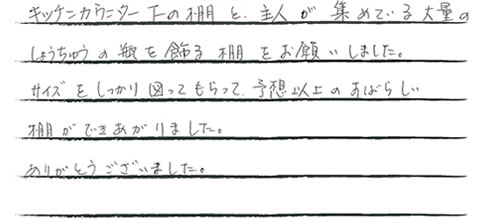 キッチンカウンター下の棚と、主人が集めている大量の
しょうちゅうの瓶を飾る棚をお願いしました。
サイズをしっかり図ってもらって、予想以上のすばらしい
棚ができあがりました。
ありがとうございました。